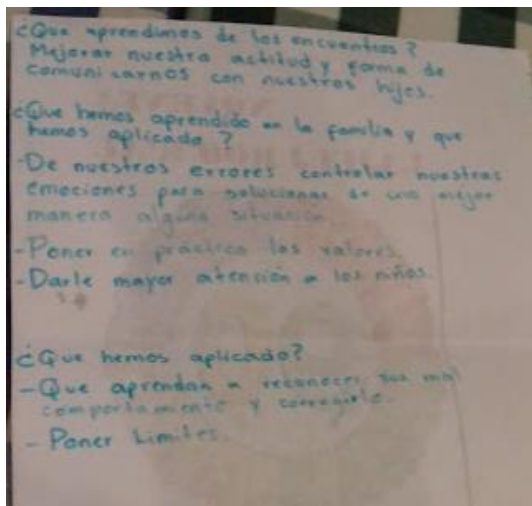 ¿Que aprendimos de los encuentros?
Mejorar nuestra actitud y forma de
comunicarnos con nuestros hijos.
¿Que hemos aprendido en la familia y que
hemos aplicado?
-De nuestros errores controlar nuestras
emociones para solucionar de una mejor
manera alguna situación.
-Poner en práctica los valores.
-Darle mayor atención a los niños.
¿Que hemos aplicado?
-Que aprendan a reconocer sus mal
comportamiento y corregirlo.
- Poner Limites.